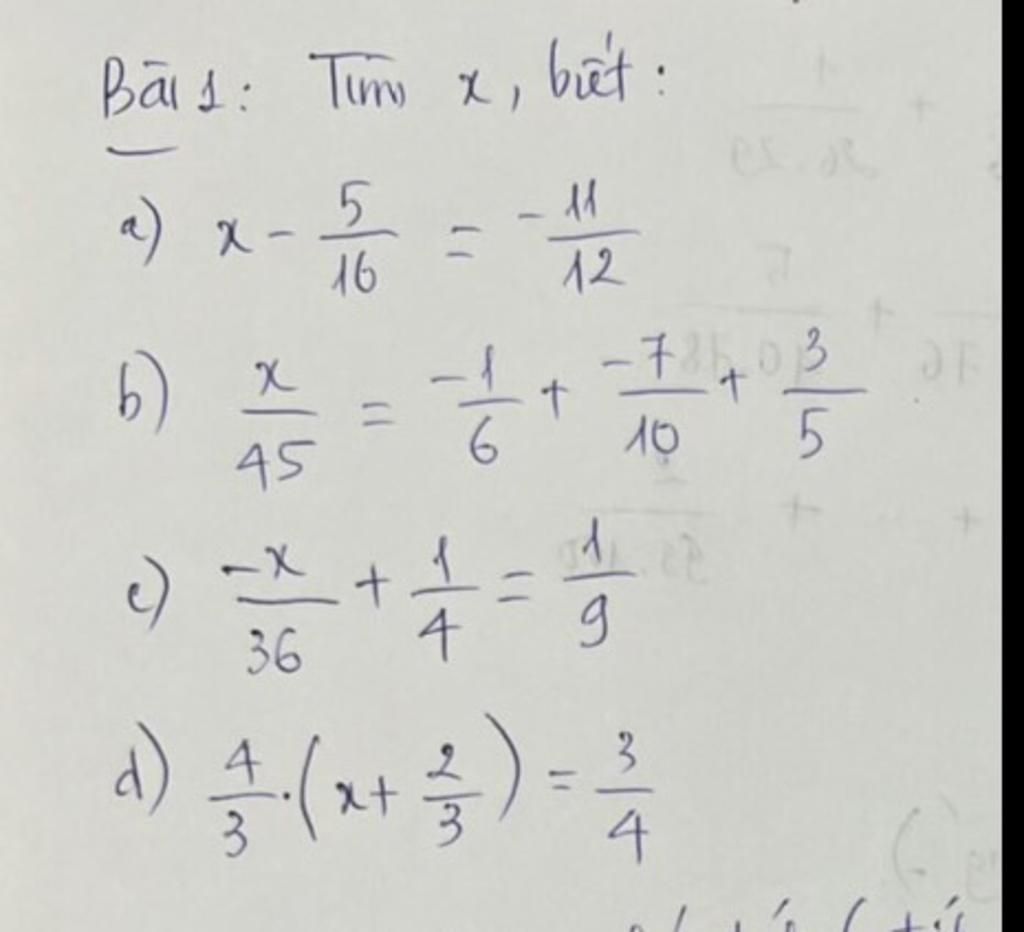 Bài 1: Tìm x, biết:
a) x - 5/16 = -11/12
b) x/45 = -1/6 + -7/10 + 3/5
c) -x/36 + 1/4 = 1/9
d) 4/3 . (x + 2/3) = 3/4